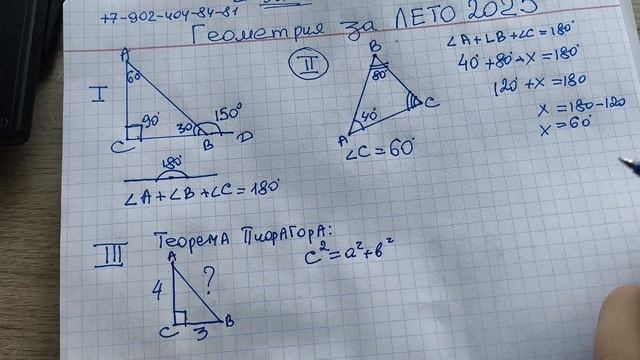 +7-902-404-84-81
Геометрия за ЛЕТО 2025
I
A
60°
90°
30°
150°
C
B
D
180°
∠A+∠B+∠C=180°
II
B
80°
40°
A
C
∠C=60°
∠A+∠B+∠C=180°
40°+80°+x=180°
120+x=180
x=180-120
x=60°
III
ТЕОРЕМА ПИФАГОРА:
c²=a²+b²
A
4
?
C
3
B